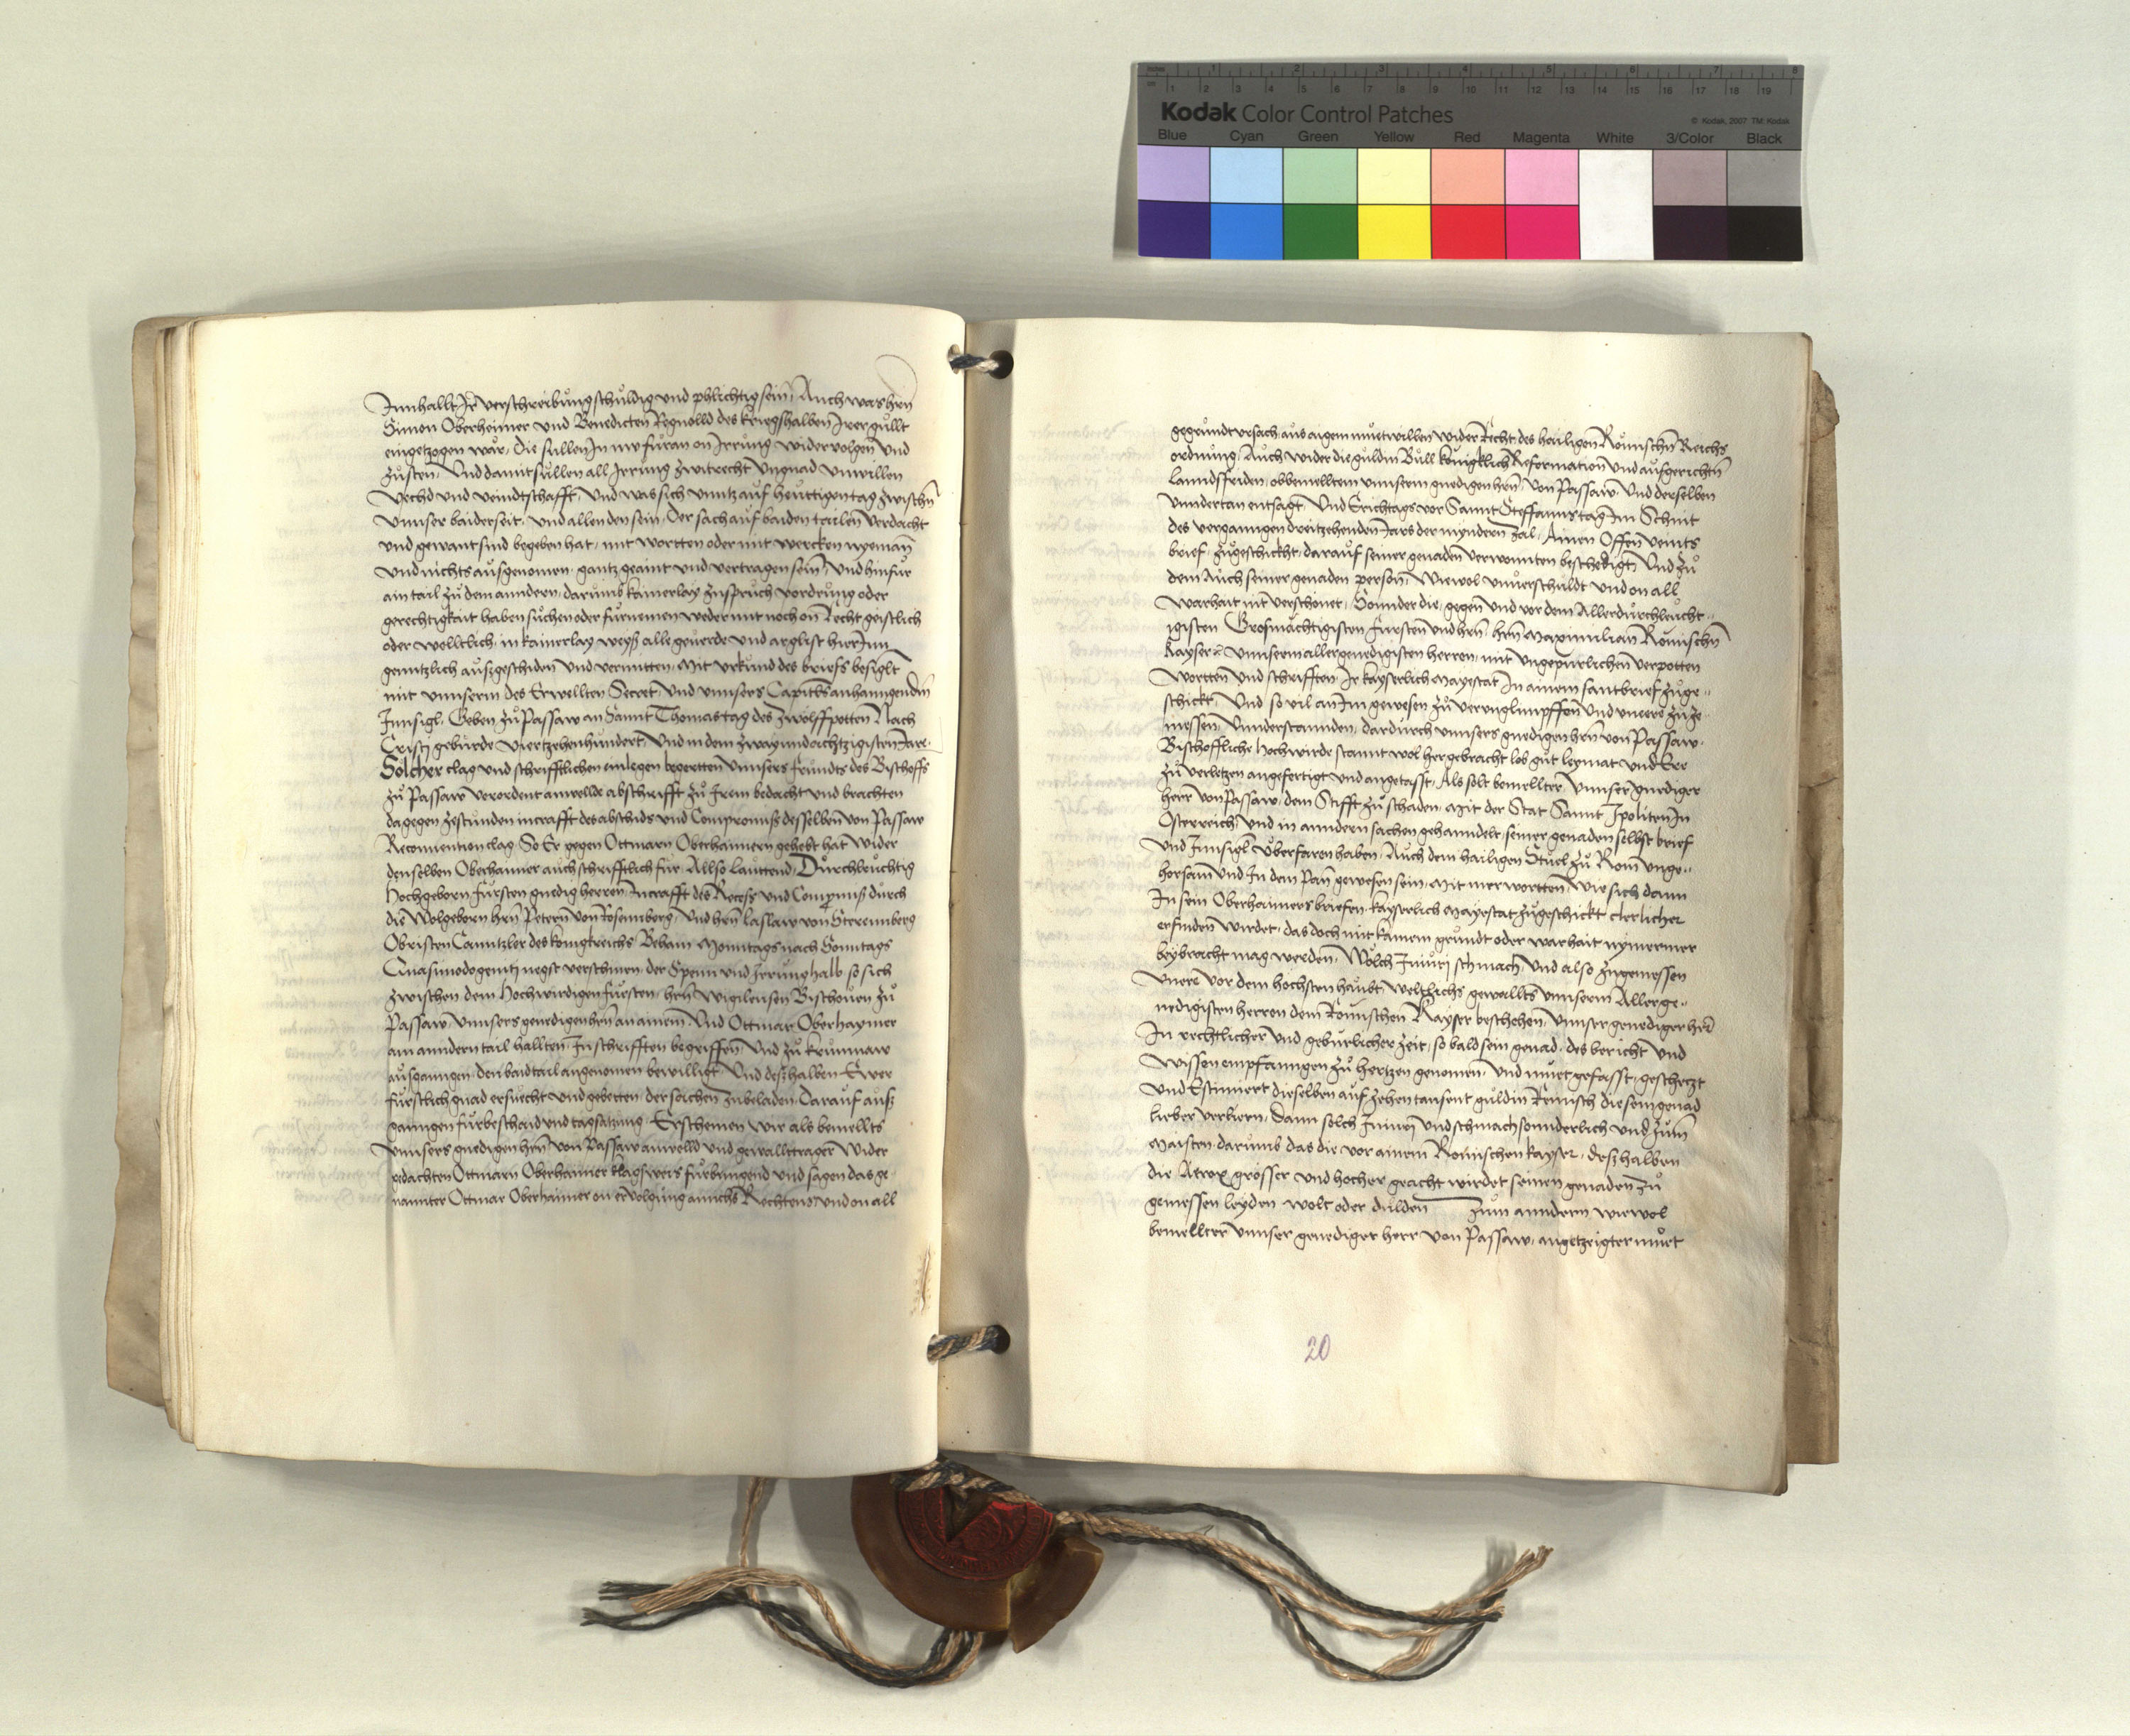 Inches 1 2 3 4 5 6 7 8
cm 1 2 3 4 5 6 7 8 9 10 11 12 13 14 15 16 17 18 19
Kodak Color Control Patches
© Kodak, 2007 TM: Kodak
Blue Cyan Green Yellow Red Magenta White 3/Color Black
Innhallt Ir verschreibung schuldig und phlichtig sein, Auch was hrn
Simon Oberheimer und Benedicten Regnolld des kriegshalben Irer gullt
eingetzogen wär, Die sullen In nw füran on Irrung widervolgen und
zusten, Und damit sullen all Irrung zwitrecht ungnad unwillen
Vechd und veindtschafft, und was sich unntz auf heuttigen tag zwischn
unnser baiderseit, und allen den sein, Der sach auf baiden tailen verdacht
und gewant sind begeben hat, mit wortten oder mit wercken nyeman
und nichts ausgenomen, gantz geaint und vertragen sein, und hinfur
ain tail zu dem anndern, darumb kainerlay zuspruch vordrung oder
gerechtigkait haben suchen oder furnemen weder mit noch on Recht geistlich
oder welltlich, in kainerlay weyss alle geuerde und arglist hierInn
genntzlich ausgeschiden und vermitten, Mit urkund des briefs besiglt
mit unnserm des Erwellten Secret, und unnsers Capittls anhanngendm
Innsigl, Geben zu Passaw an Sannt Thomas tag des zwolffpotten Nach
Cristj geburde Viertzehenhundert, und in dem zway und achtzigisten Jare.
Solcher clag und schrifftlichen einlegen begertten unnsers freundts des Bischoffs
zu Passaw verordent anwelde abschrifft zu Irem bedacht und brachten
dagegen zestunden incrafft des abschids und Compromiss desselben von Passaw
Reconvention clag, So Er gegen Ottmarn Oberhaimern gehebt hat wider
denselben Oberhaimer auch schrifftlich für, Allso lauttend, Durchleuchtig
Hochgeborn Fursten gnedig herren, Incrafft des Recess und Compromiss durch
die Wolgeborn hrn Petern von Rosemberg, Und hrn Lasslaw von Sterennberg
Obristen Canntzler des konigkreichs Beham Monntags nach Sonntags
Quasimodogenitj negst verschinen, der Spenn und Irrung halb so sich
zwischen dem Hochwirdigen fürsten, hrn Wigileusen Bischouen zu
Passaw, unnsers genedigen hrn an ainem, Und Ottmar Oberhaymer
am anndern tail hallten, In schrifften begriffen, Und zu krummaw
ausganngen, den baid tail angenomen bewilligt, Und desshalben Ewer
furstlich gnad ersuecht und gebetten, der sachen zubeladen, Darauf auss
ganngen fürbeschaid und tagsatzung, Erscheinen wir als bemellts
unnsers gnedigen hrn von Passaw anwelld und gewallttrager wider
gedachten Ottmarn Oberhaimer klagsweis fürbringend und sagen das ge
nannter Ottmar Oberhaimer on ervolgung ainichs Rechtens und on all
gegrundt ursach aus aigem muetwillen wider Recht, des hailigen Römischn Reichs
ordnung, Auch wider die guldin Bull königklich Reformation und aufgerichtn
Lanndsfriden, obbemelltem unnserm gnedigen hrn, von Passaw, Und derselben
unndertan entsagt, Und Erichtags vor Sannt Steffanns tag Im Schnit
des verganngen dreitzehenden Jars der myndern zal, Ainen Offen veints
brief, zugeschickht, darauf seiner genaden verwonnten beschedigt, Und zu
dem Auch seiner genaden person, Wiewol unverschuldt und on all
warhait nit verschonet, Sonnder die, gegen und vor dem Allerdurchleucht..
igisten Grosmächtigisten Fürsten und hrn, hrn Maximilian Römischn
Kayser unnserm allergenedigisten herren, mit ungepürlichen verpotten
wortten und schrifften, Ir kayserlich Mayestat In ainem santbrief zuge..
schickt, Und so vil an Im gewesen zu verunglimpffen und uneere zuze..
messen, Unnderstannden, dardurch unnsers gnedigen hrn von Passaw,
Bischoffliche Hochwirde stannt wol hergebracht lob gut leymat und Eer
zu verletzen angefertigt und angetasst, Als solt bemellter unnser gnediger
herr von Passaw, dem Stifft zu schaden Mit der Stat Sannt Ipoliten In
Osterreich, Und in anndern sachen gehanndelt, seiner genaden selbst brief
und Innsigl uberfaren haben, Auch dem hailigen Stuel zu Rom unge..
horsam und In dem Pan gewesen sein, Mit mer wortten, wie sich dann
In sein Oberhaimers briefen, kayserlich Mayestat zugeschickt clerlicher
erfinden wirdet, das doch mit kainem grundt oder warhait nymermer
beybracht mag werden, Wolch Iniurj schmach, Und also zugemessen
Uneere vor dem hochsten haubt, weltlichs gewallts unnserm Allerge..
nedigisten herren dem Romischen Kayser beschehen, Unnser genediger hrr
In rechtlicher und geburlicher zeit, so bald sein genad, des bericht und
Wissen empfanngen zu hertzen genomen, Und muet gefasst, geschetzt
und Estimiert dieselben auf zehen tausent guldin Reinisch die sein genad
lieber verliern, Dann solch Iniurj und schmach sonnderlich und zum
Maisten, darumb das die vor ainem Römischen kayser, desshalben
die Atrox grösser und hocher geacht wirdet seinen genaden zu
gemessen leyden wolt oder dulden Zum anndern wiewol
bemellter unnser genediger herr von Passaw, angetzeigter muet
20